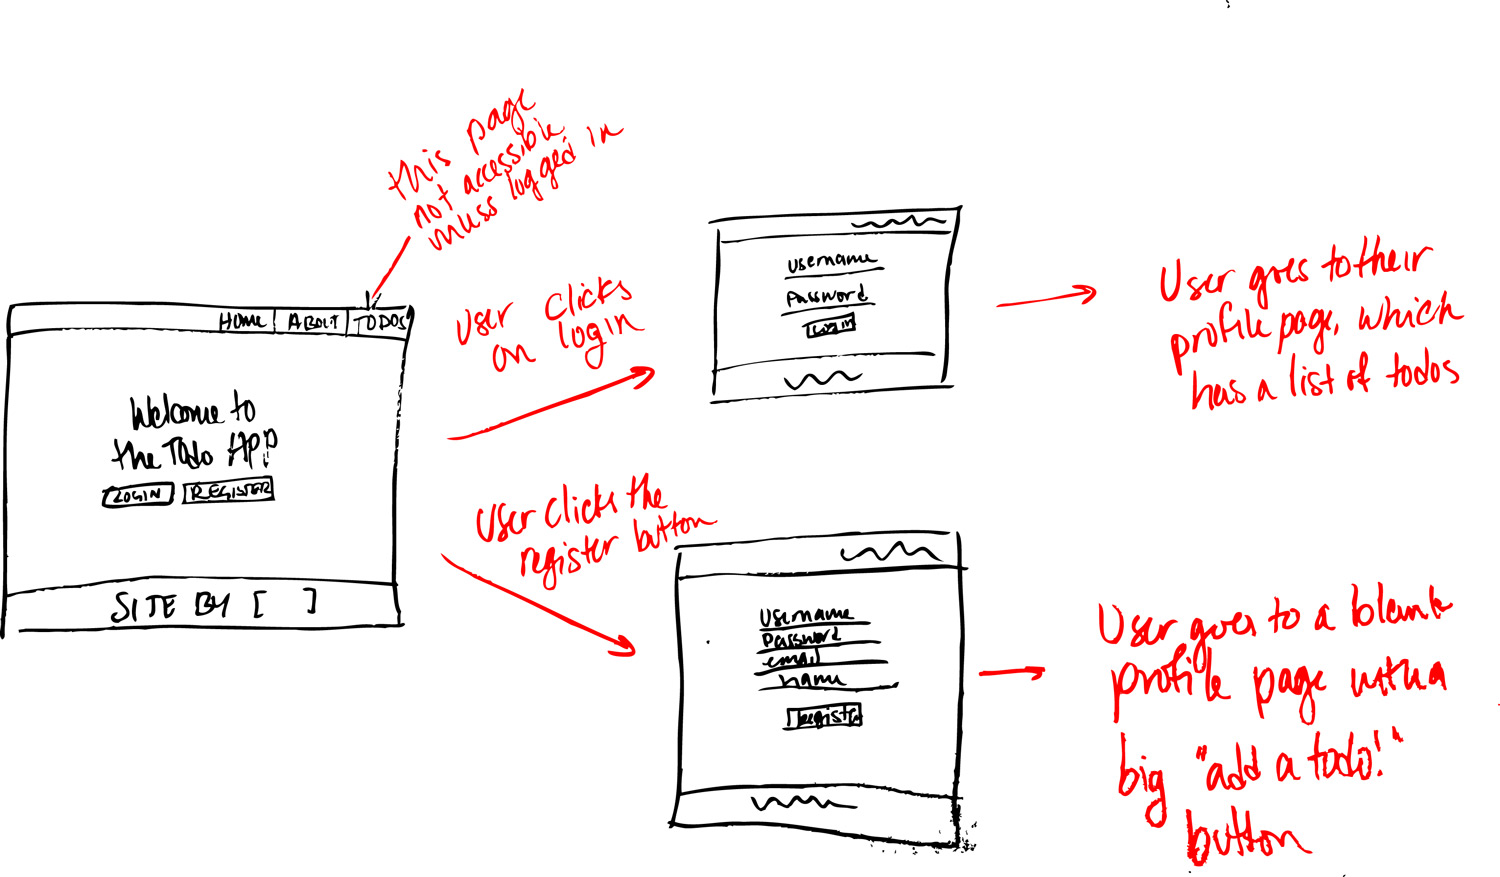 this page
not accessible
unless logged in
HOME ABOUT TODOS
Welcome to
the Todo APP
LOGIN REGISTER
SITE BY [ ]
User clicks
on login
username
Password
Login
User goes to their
profile page, which
has a list of todos
User clicks the
register button
Username
Password
email
name
Register
User goes to a blank
profile page with a
big "add a todo!"
button